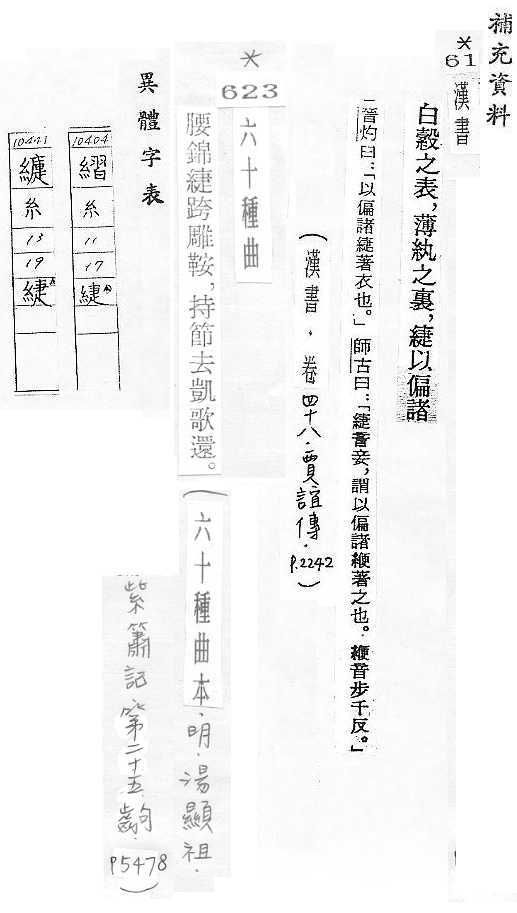 補充資料
*
61
漢書
白縠之表，薄紈之裏，緁以偏諸
晉灼曰：「以偏諸緁著衣也。」師古曰：「緁音妾，謂以偏諸緶著之也。緶音步千反。」
（漢書．卷四十八．賈誼傳．P.2242）
*
623
六十種曲
腰錦緁跨雕鞍，持節去凱歌還。（六十種曲本．明．湯顯祖．
紫簫記第二十五齣．P5478）
異體字表
10404
糸
11
17
緁
10441
糸
13
19
緁